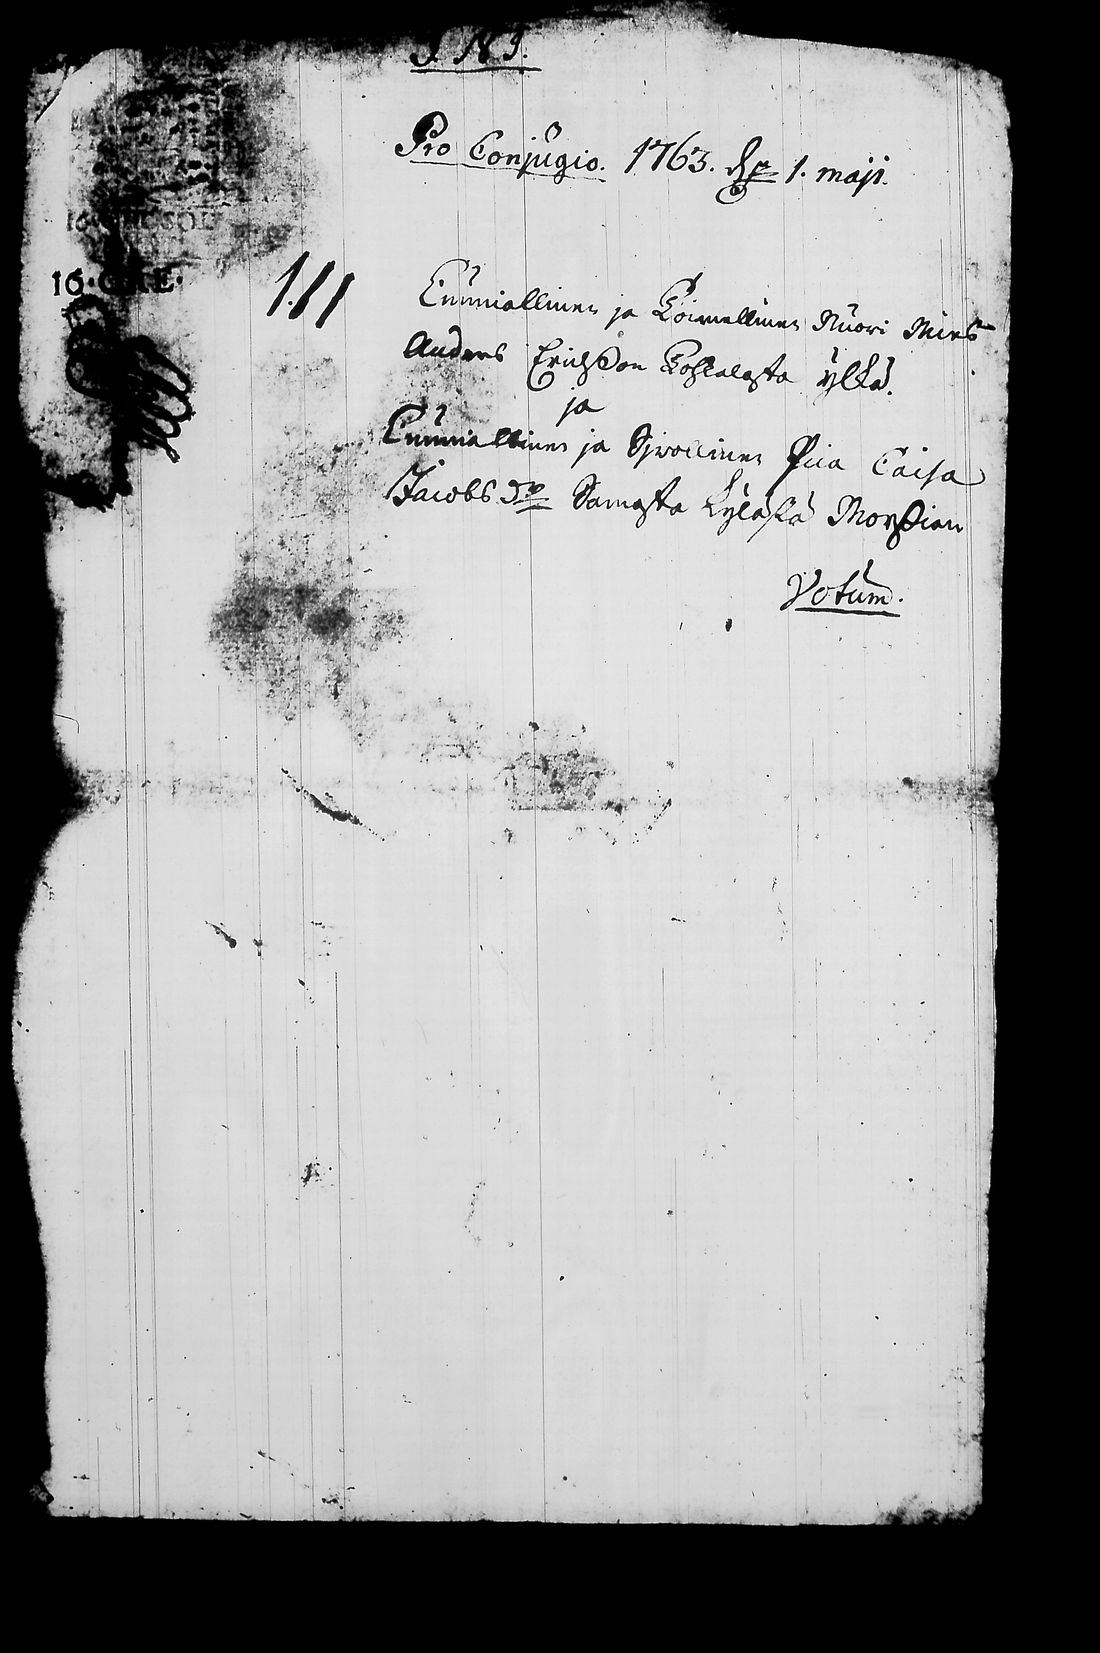 J. N. J.
Pro Conjugio. 1763. d. 1. maji.
16·ÖRE·
1.11
Cunniallinen ja Toimellinen Nuori Mies
Anders Erichsson Kohlalasta ylkä.
ja
Cunniallinen ja Sjwollinen Piia Caisa
Jacobsdr Samasta kyläsä Morssian
Votum.